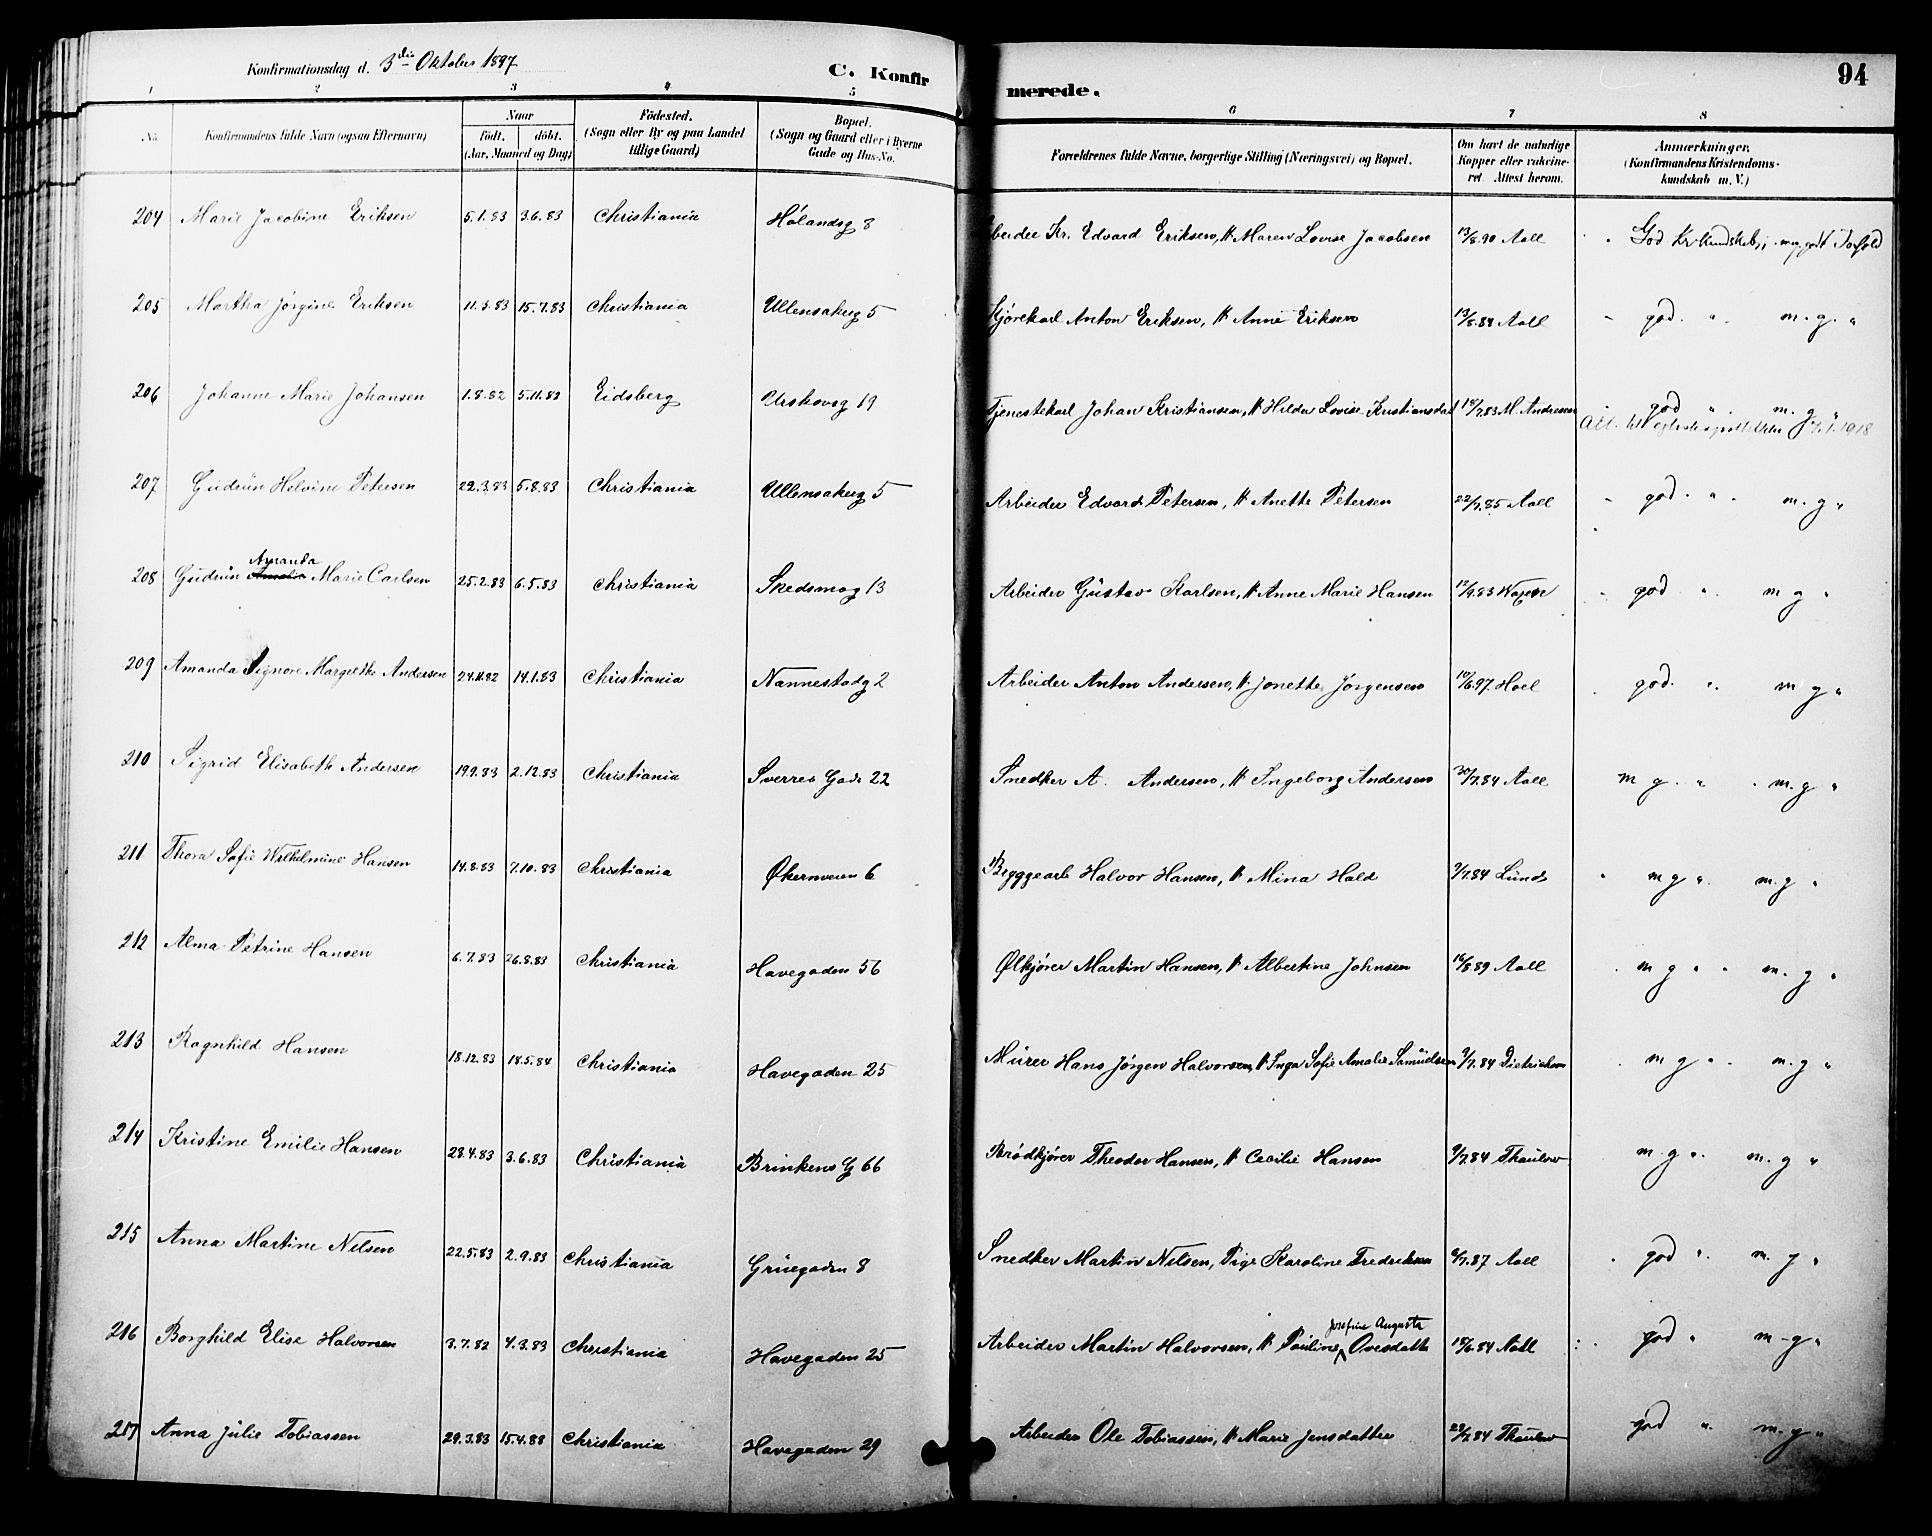 Konfirmationsdag d. 3die Oktober 1897 C. Konfirmerede. 94
1 2 3 4 5 6 7 8
No. Konfirmandens fulde Navn (ogsaa Efternavn) Naar födt. döbt. (Aar, Maaned og Dag) Födested. (Sogn eller By og paa Landet tillige Gaard) Bopæl. (Sogn og Gaard eller i Byerne Gade og Hus-No. Forældrenes fulde Navne, borgerlige Stilling (Næringsvei) og Bopæl. Om havt de naturlige Kopper eller vakcineret Attest herom. Anmærkninger. (Konfirmandens Kristendomskundskab m. V.)
204 Marie Jacobine Eriksen 5.1.83 3.6.83 Christiania Hølandsg 8 Arbeider Kr. Edvard Eriksen, H Maren Lovise Jacobsen 13/8.90 Aall God Kr. Kundskab, meg. godt Forhold
205 Martha Jørgine Eriksen 11.3.83 15.7.83 Christiania Ullensakerg 5 Kjørekarl Anton Eriksen, H Anne Eriksen 13/8.84 Aall god " m. g. "
206 Johanne Marie Johansen 1.8.82 5.11.82 Eidsberg Urskovsg 19 Tjenestekarl Johan Kristiansen, H Hilda Lovise Kristiansdat 18/7.83 M. Andresen god " m. g "
Att. til 1918
207 Gudrun Helvine Petersen 22.3.83 5.8.83 Christiania Ullensakerg 5 Arbeider Edvard Petersen, H Anette Petersen 22/7.85 Aall god " m. g "
208 Gudrun Amalia Amanda Marie Carlsen 25.2.83 6.5.83 Christiania Skedsmog 13 Arbeider Gustav Karlsen, H Anne Marie Hansen 12/9.83 god " m g "
209 Amanda Signore Margrethe Andersen 24.11.82 14.1.83 Christiania Nannestadg 2 Arbeider Anton Andersen, H. Jonette Jørgensen 10/6.97 Hoel god " m g "
210 Sigrid Elisabeth Andersen 19.9.83 2.12.83 Christiania Sverres Gade 22 Snedker A. Andersen, H Ingeborg Andersen 30/7.84 Aall m g " m. g "
211 Thora Sofie Wilhelmine Hansen 14.8.83 7.10.83 Christiania Økernveien 6 Byggearb Halvor Hansen, H Mina Hald 9/7.84 Lund m g " m. g "
212 Alma Petrine Hansen 6.7.83 26.8.83 Christiania Havegaden 56 Ølkjører Martin Hansen, H Albertine Johnsen 16/8.89 Aall m g " m. g "
213 Ragnhild Hansen 18.12.83 18.5.84 Christiania Havegaden 25 Murer Hans Jørgen Halvorsen, H Inga Sofie Amalie Samuelsen 9/7.84 Dietrichson m g " m. g "
214 Kristine Emilie Hansen 28.4.83 3.6.83 Christiania Brinkens G 66 Brødkjører Theodor Hansen, H Cecilie Hansen 9/7.84 Thaulow m. g " m. g "
215 Anna Martine Nilsen 22.5.83 2.9.83 Christiania Grüegaden 8 Snedker Martin Nilsen, Pige Karoline Fredriksen 6/7.87 Aall god " m. g "
216 Borghild Elise Halvorsen 3.7.82 4.3.83 Christiania Havegaden 25 Arbeider Martin Halvorsen, H Pauline Josefine Augusta Ovesdatte 18/6.84 Aall god " m - g "
217 Anna Julie Tobiassen 29.3.83 15.4.88 Christiania Havegaden 29 Arbeider Ole Tobiassen, H Marie Jensdatter 23/7.84 Thaulow god " m. g "